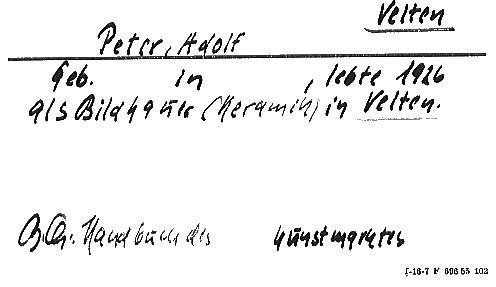 Velten
Peter, Adolf
Geb. in , lebte 1926
als Bildhauer (Keramik) in Velten.
Handbuch des Kunstmarktes
I-16-7 F 696 55 102